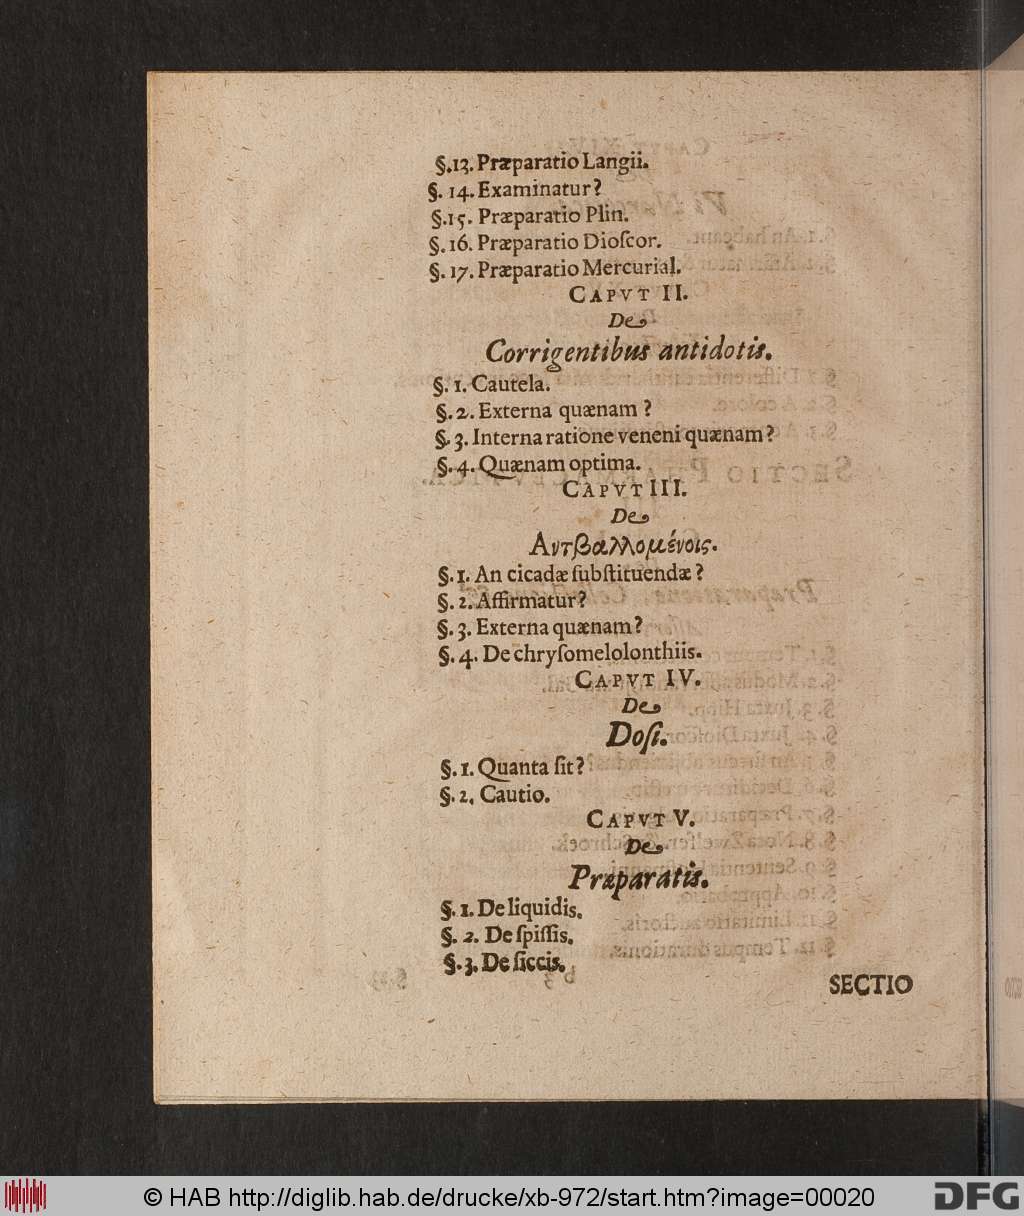 §.13. Præparatio Langii.
§. 14. Examinatur?
§.15. Præparatio Plin.
§.16. Præparatio Dioſcor.
§. 17. Præparatio Mercurial.
CAPVT II.
De
Corrigentibus antidotis.
§. 1. Cautela.
§. 2. Externa quænam?
§. 3. Interna ratione veneni quænam?
§. 4. Quænam optima.
CAPVT III.
De
Αντβαλλομένοις.
§. 1. An cicadæ ſubſtituendæ?
§. 2. Affirmatur?
§. 3. Externa quænam?
§. 4. De chryſomelolonthiis.
CAPVT IV.
De
Doſi.
§. 1. Quanta ſit?
§. 2. Cautio.
CAPVT V.
De
Præparatis.
§. 1. De liquidis.
§. 2. De ſpiſſis.
§. 3. De ſiccis.
SECTIO
© HAB http://diglib.hab.de/drucke/xb-972/start.htm?image=00020
DFG